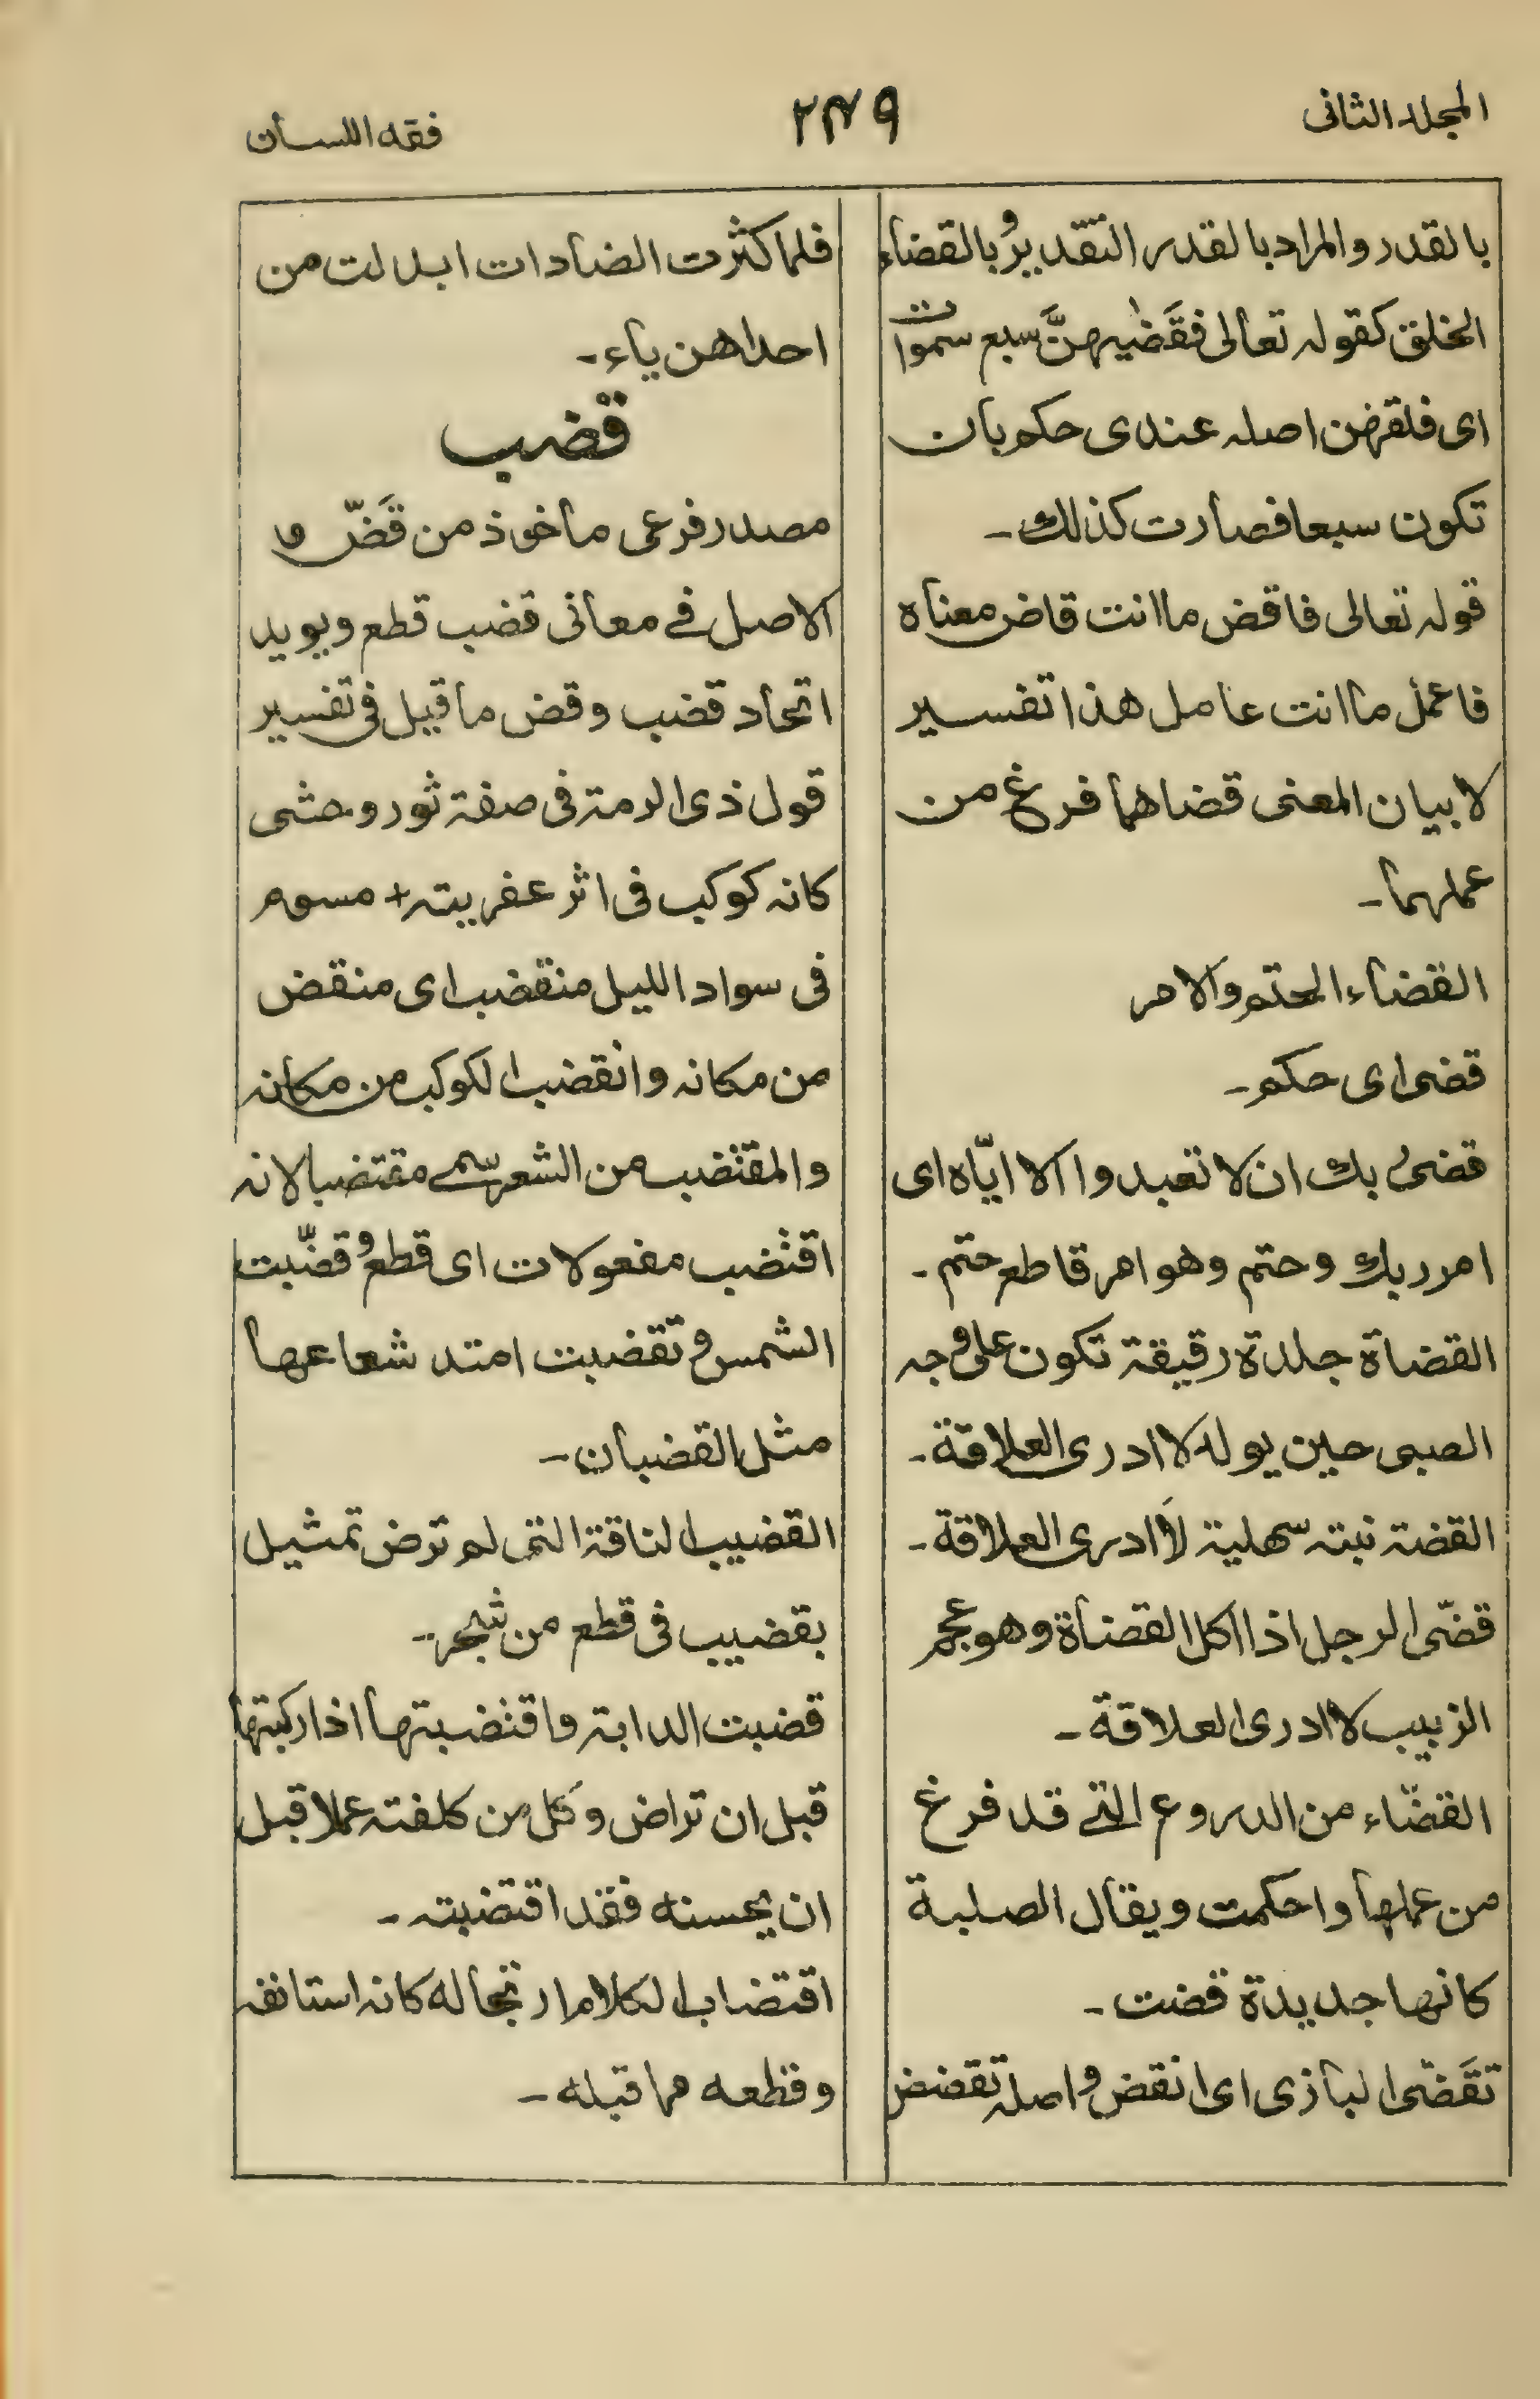 المجلد الثانى
٢٣٩
فقه اللسان
بالقدر والمراد بالقدر التقدير وبالقضاء
الخلق كقوله تعالى فقَضٰىهنَّ سبع سموات
اى فلقهن اصله عندى حكم بان
تكون سبعا فصارت كذلك ـ
قوله تعالى فاقض ما انت قاض معناه
فاعمل ما انت عامل هذا تفسير
لا بيان المعنى قضاهما فرغ من
عملهما ـ
القضاء الحتم والامر
قضى اى حكم ـ
قضى ربك ان لا تعبدوا الا ايّاه اى
امر ربك وحتم وهو امر قاطع حتم ـ
القضاة جلدة رقيقة تكون على وجه
الصبى حين يولد لا ادرى العلاقة ـ
القضة نبتة سهلية لا ادرى العلاقة ـ
قضّى الرجل اذا اكل القضاة وهو عجم
الزبيب لا ادرى العلاقة ـ
القضّاء من الدروع التى قد فرغ
من عملها واحكمت ويقال الصلبة
كانها جديدة قضت ـ
تقَضّى البازى اى انقض واصله تقضض
فلما كثرت الضادات ابدلت من
احداهن ياء ـ
قضب
مصدر فرعى ماخوذ من قَضّ و
الاصل فى معانى قضب قطع ويويد
اتحاد قضب وقض ما قيل فى تفسير
قول ذى الرمة فى صفة ثور وحشى
كانه كوكب فى اثر عفرية + مسوم
فى سواد الليل منقضب اى منقض
من مكانه وانقضب الكوكب من مكانه
والمقتضب من الشعر سمى مقتضبا لانه
اقتضب مفعولات اى قطع وقضّبت
الشمس وتقضبت امتد شعاعها
مثل القضبان ـ
القضيب الناقة التى لم ترض تمثيل
بقضيب فى قطع من شجر ـ
قضبت الدابة واقتضبتها اذا ركبتها
قبل ان تراض وكل من كلفته عملا قبل
ان يحسنه فقد اقتضبته ـ
اقتضاب الكلام ارتجاله كانه استانفه
وقطعه مما قبله ـ